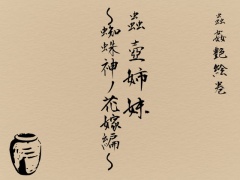 蟲姦艶絵巻
蟲壺姉妹
~蜘蛛神ノ花嫁編~